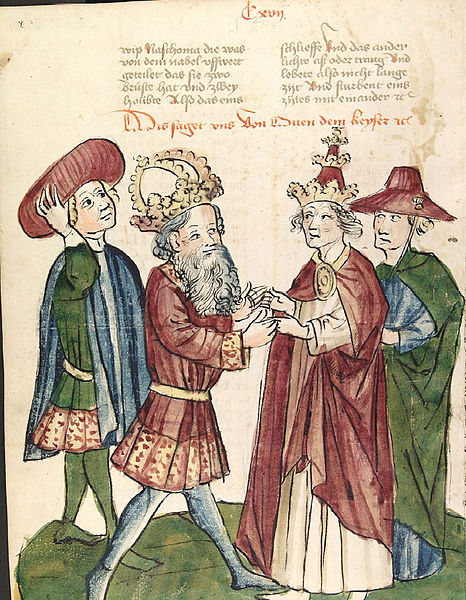 Cxvij
wip Naschona die was
von dem nabel uffwert
geteilet das sie zwo
brüste hat vnd zwey
houbte Also das eins
schlieffe Vnd das ander
aß oder trang Vnd
lebete also nicht lange
zyt Vnd sturbent eins
zytes mit einander ꝛc
Dis saget vns Von Otten dem keyser ꝛc